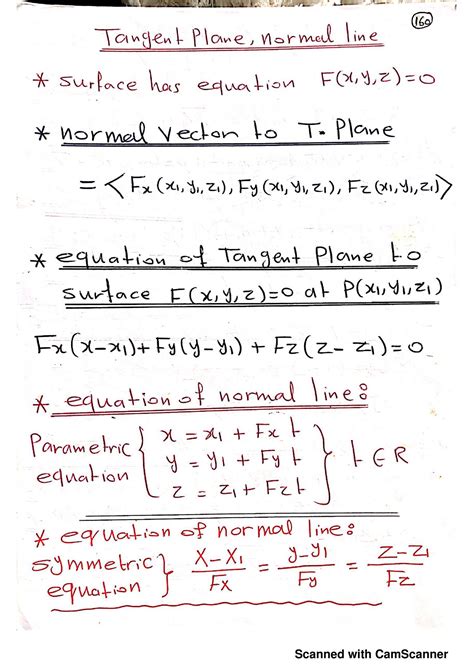 160
Tangent Plane, normal line
* surface has equation F(x,y,z)=0
* normal vector to T. Plane
= <Fx(x1,y1,z1), Fy(x1,y1,z1), Fz(x1,y1,z1)>
* equation of Tangent Plane to
surface F(x,y,z)=0 at P(x1,y1,z1)
Fx(x-x1)+Fy(y-y1)+Fz(z-z1)=0
* equation of normal line:
Parametric equation { x = x1 + Fx t
y = y1 + Fy t } t ∈ R
z = z1 + Fz t
* equation of normal line:
symmetric equation } X-X1/Fx = y-y1/Fy = Z-Z1/Fz
Scanned with CamScanner